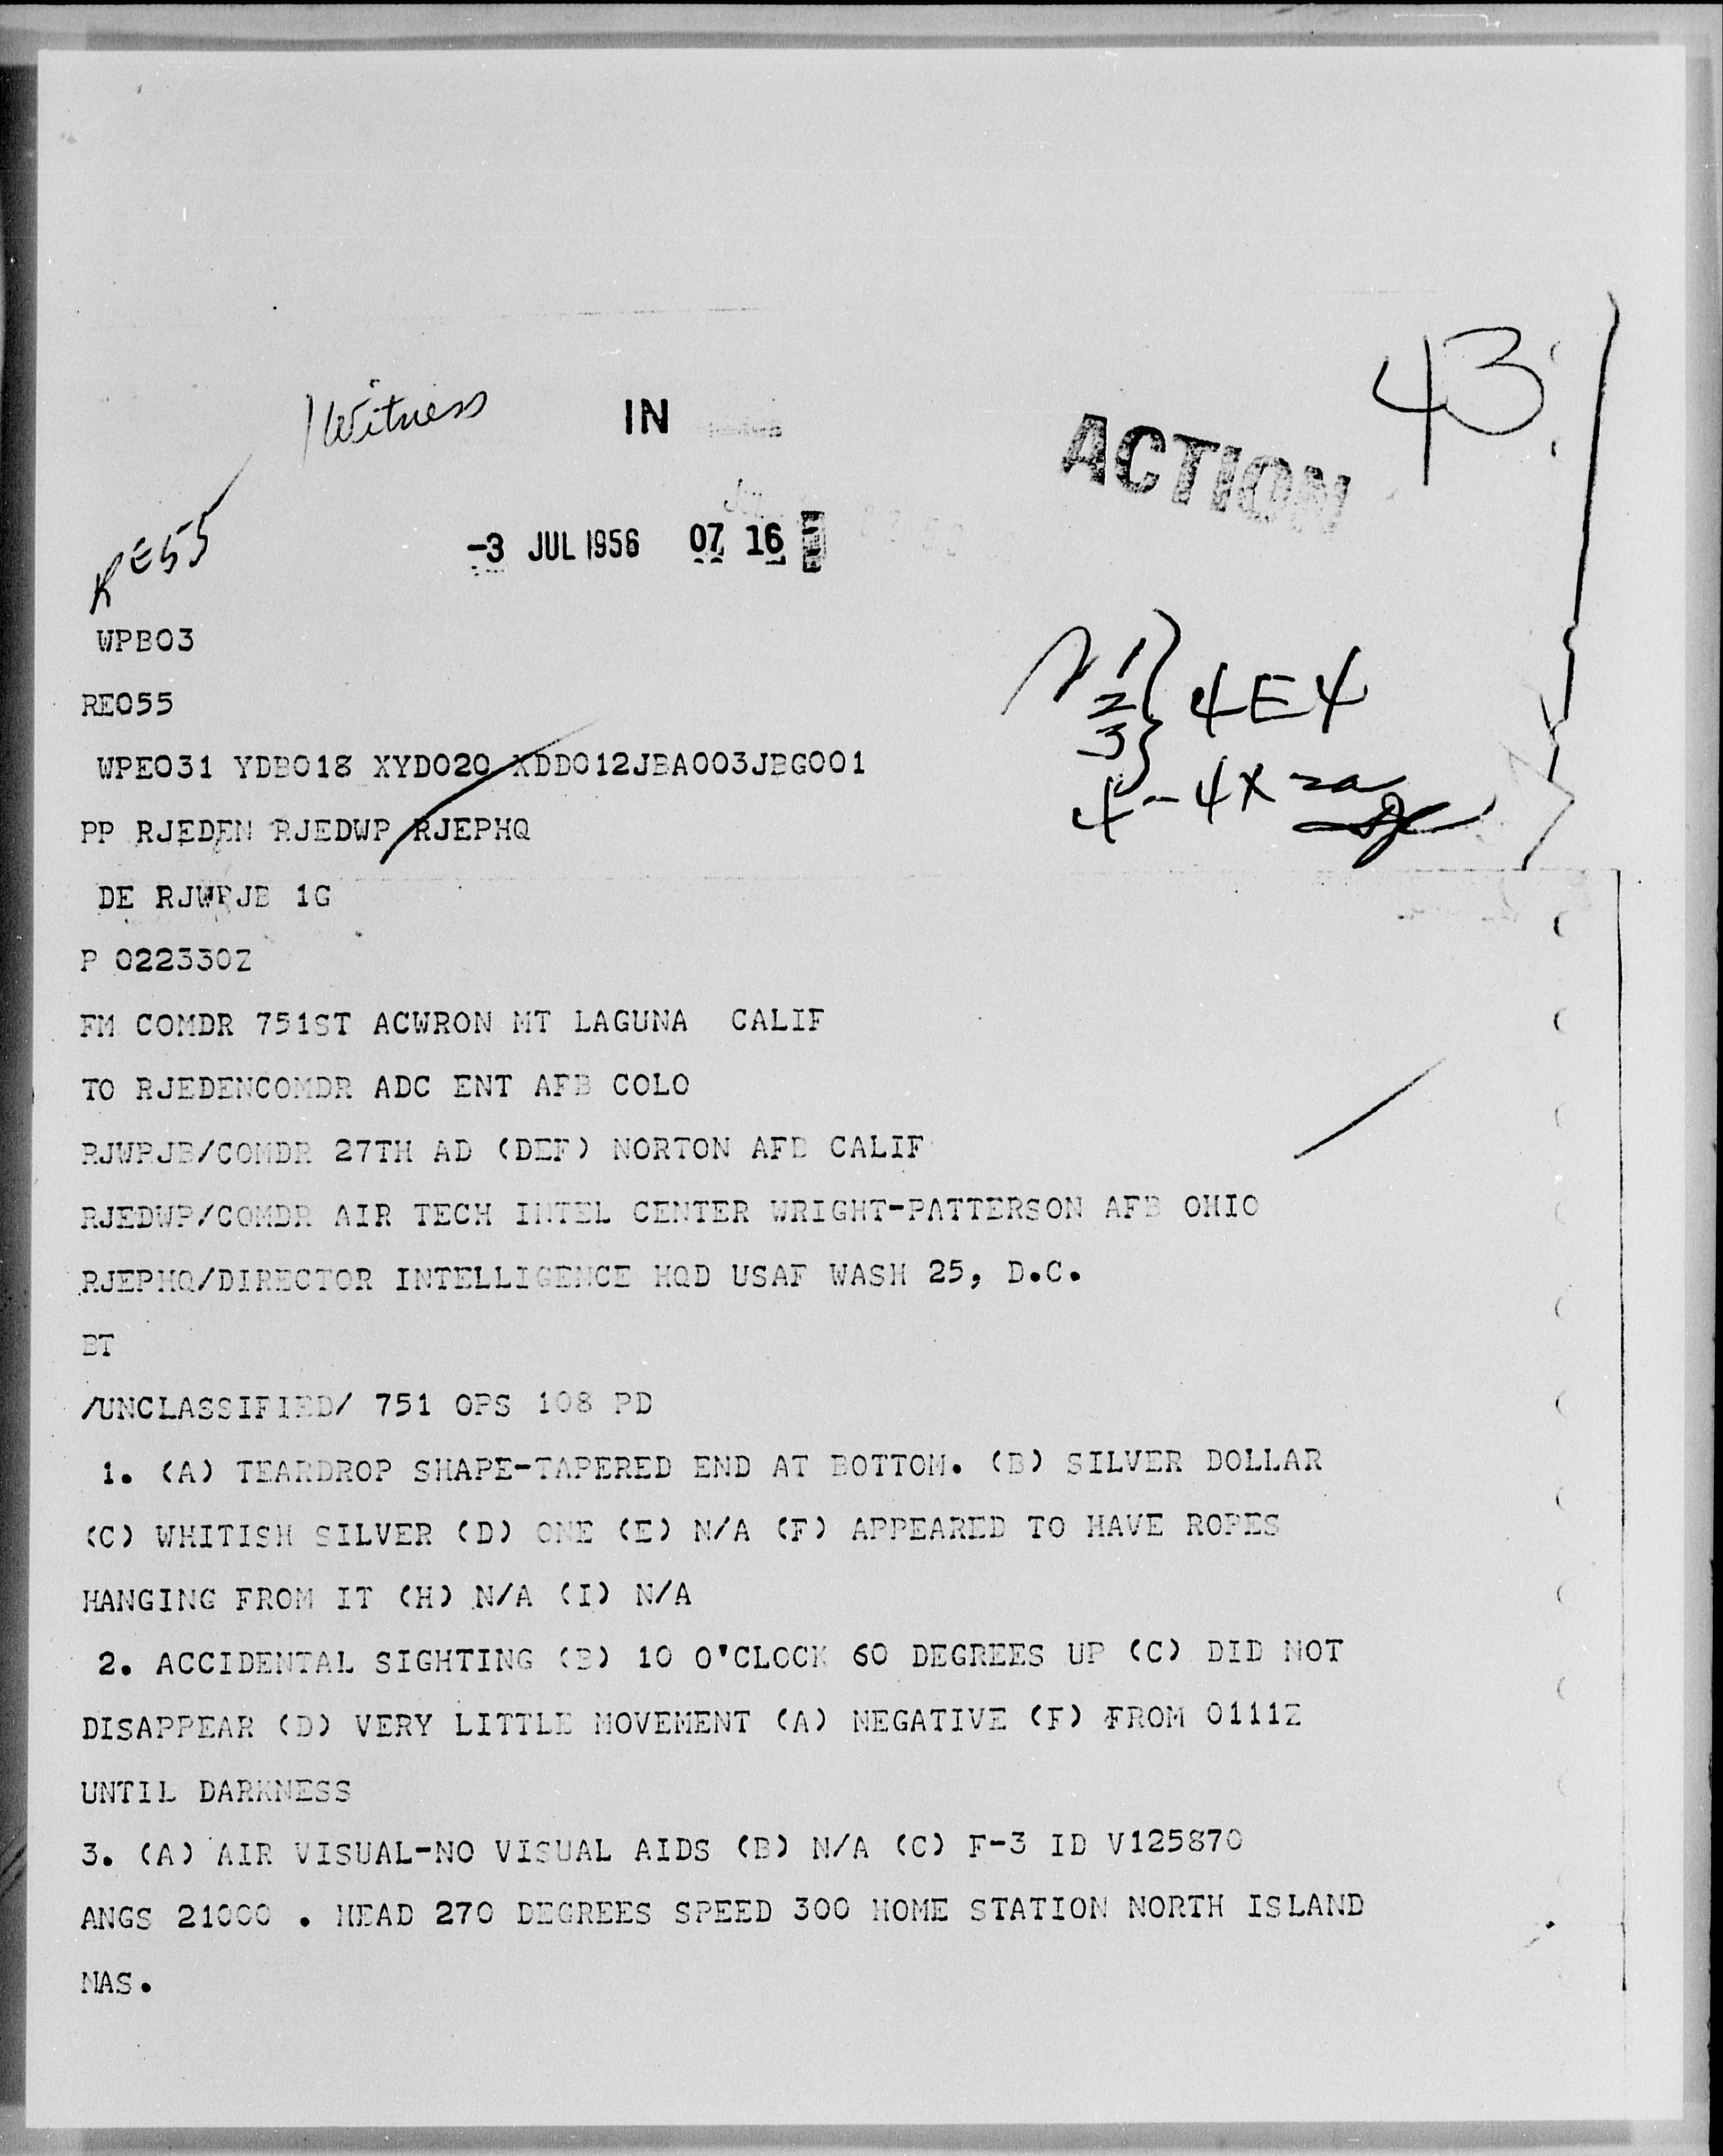 43
Witness
IN
ACTION
RE55
-3 JUL 1956 07 16
1
2 4E4
3
4-4X2a
WPB03
RE055
WPE031 YDB018 XYD020 XDD012JBA003JBG001
PP RJEDEN RJEDWP RJEPHQ
DE RJWPJB 1G
P 022330Z
FM COMDR 751ST ACWRON MT LAGUNA CALIF
TO RJEDENCOMDR ADC ENT AFB COLO
RJWPJB/COMDR 27TH AD (DEF) NORTON AFB CALIF
RJEDWP/COMDR AIR TECH INTEL CENTER WRIGHT-PATTERSON AFB OHIO
RJEPHQ/DIRECTOR INTELLIGENCE HQD USAF WASH 25, D.C.
BT
/UNCLASSIFIED/ 751 OPS 108 PD
1. (A) TEARDROP SHAPE-TAPERED END AT BOTTOM. (B) SILVER DOLLAR
(C) WHITISH SILVER (D) ONE (E) N/A (F) APPEARED TO HAVE ROPES
HANGING FROM IT (H) N/A (I) N/A
2. ACCIDENTAL SIGHTING (B) 10 O'CLOCK 60 DEGREES UP (C) DID NOT
DISAPPEAR (D) VERY LITTLE MOVEMENT (A) NEGATIVE (F) FROM 0111Z
UNTIL DARKNESS
3. (A) AIR VISUAL-NO VISUAL AIDS (B) N/A (C) F-3 ID V125870
ANGS 21000 . HEAD 270 DEGREES SPEED 300 HOME STATION NORTH ISLAND
NAS.